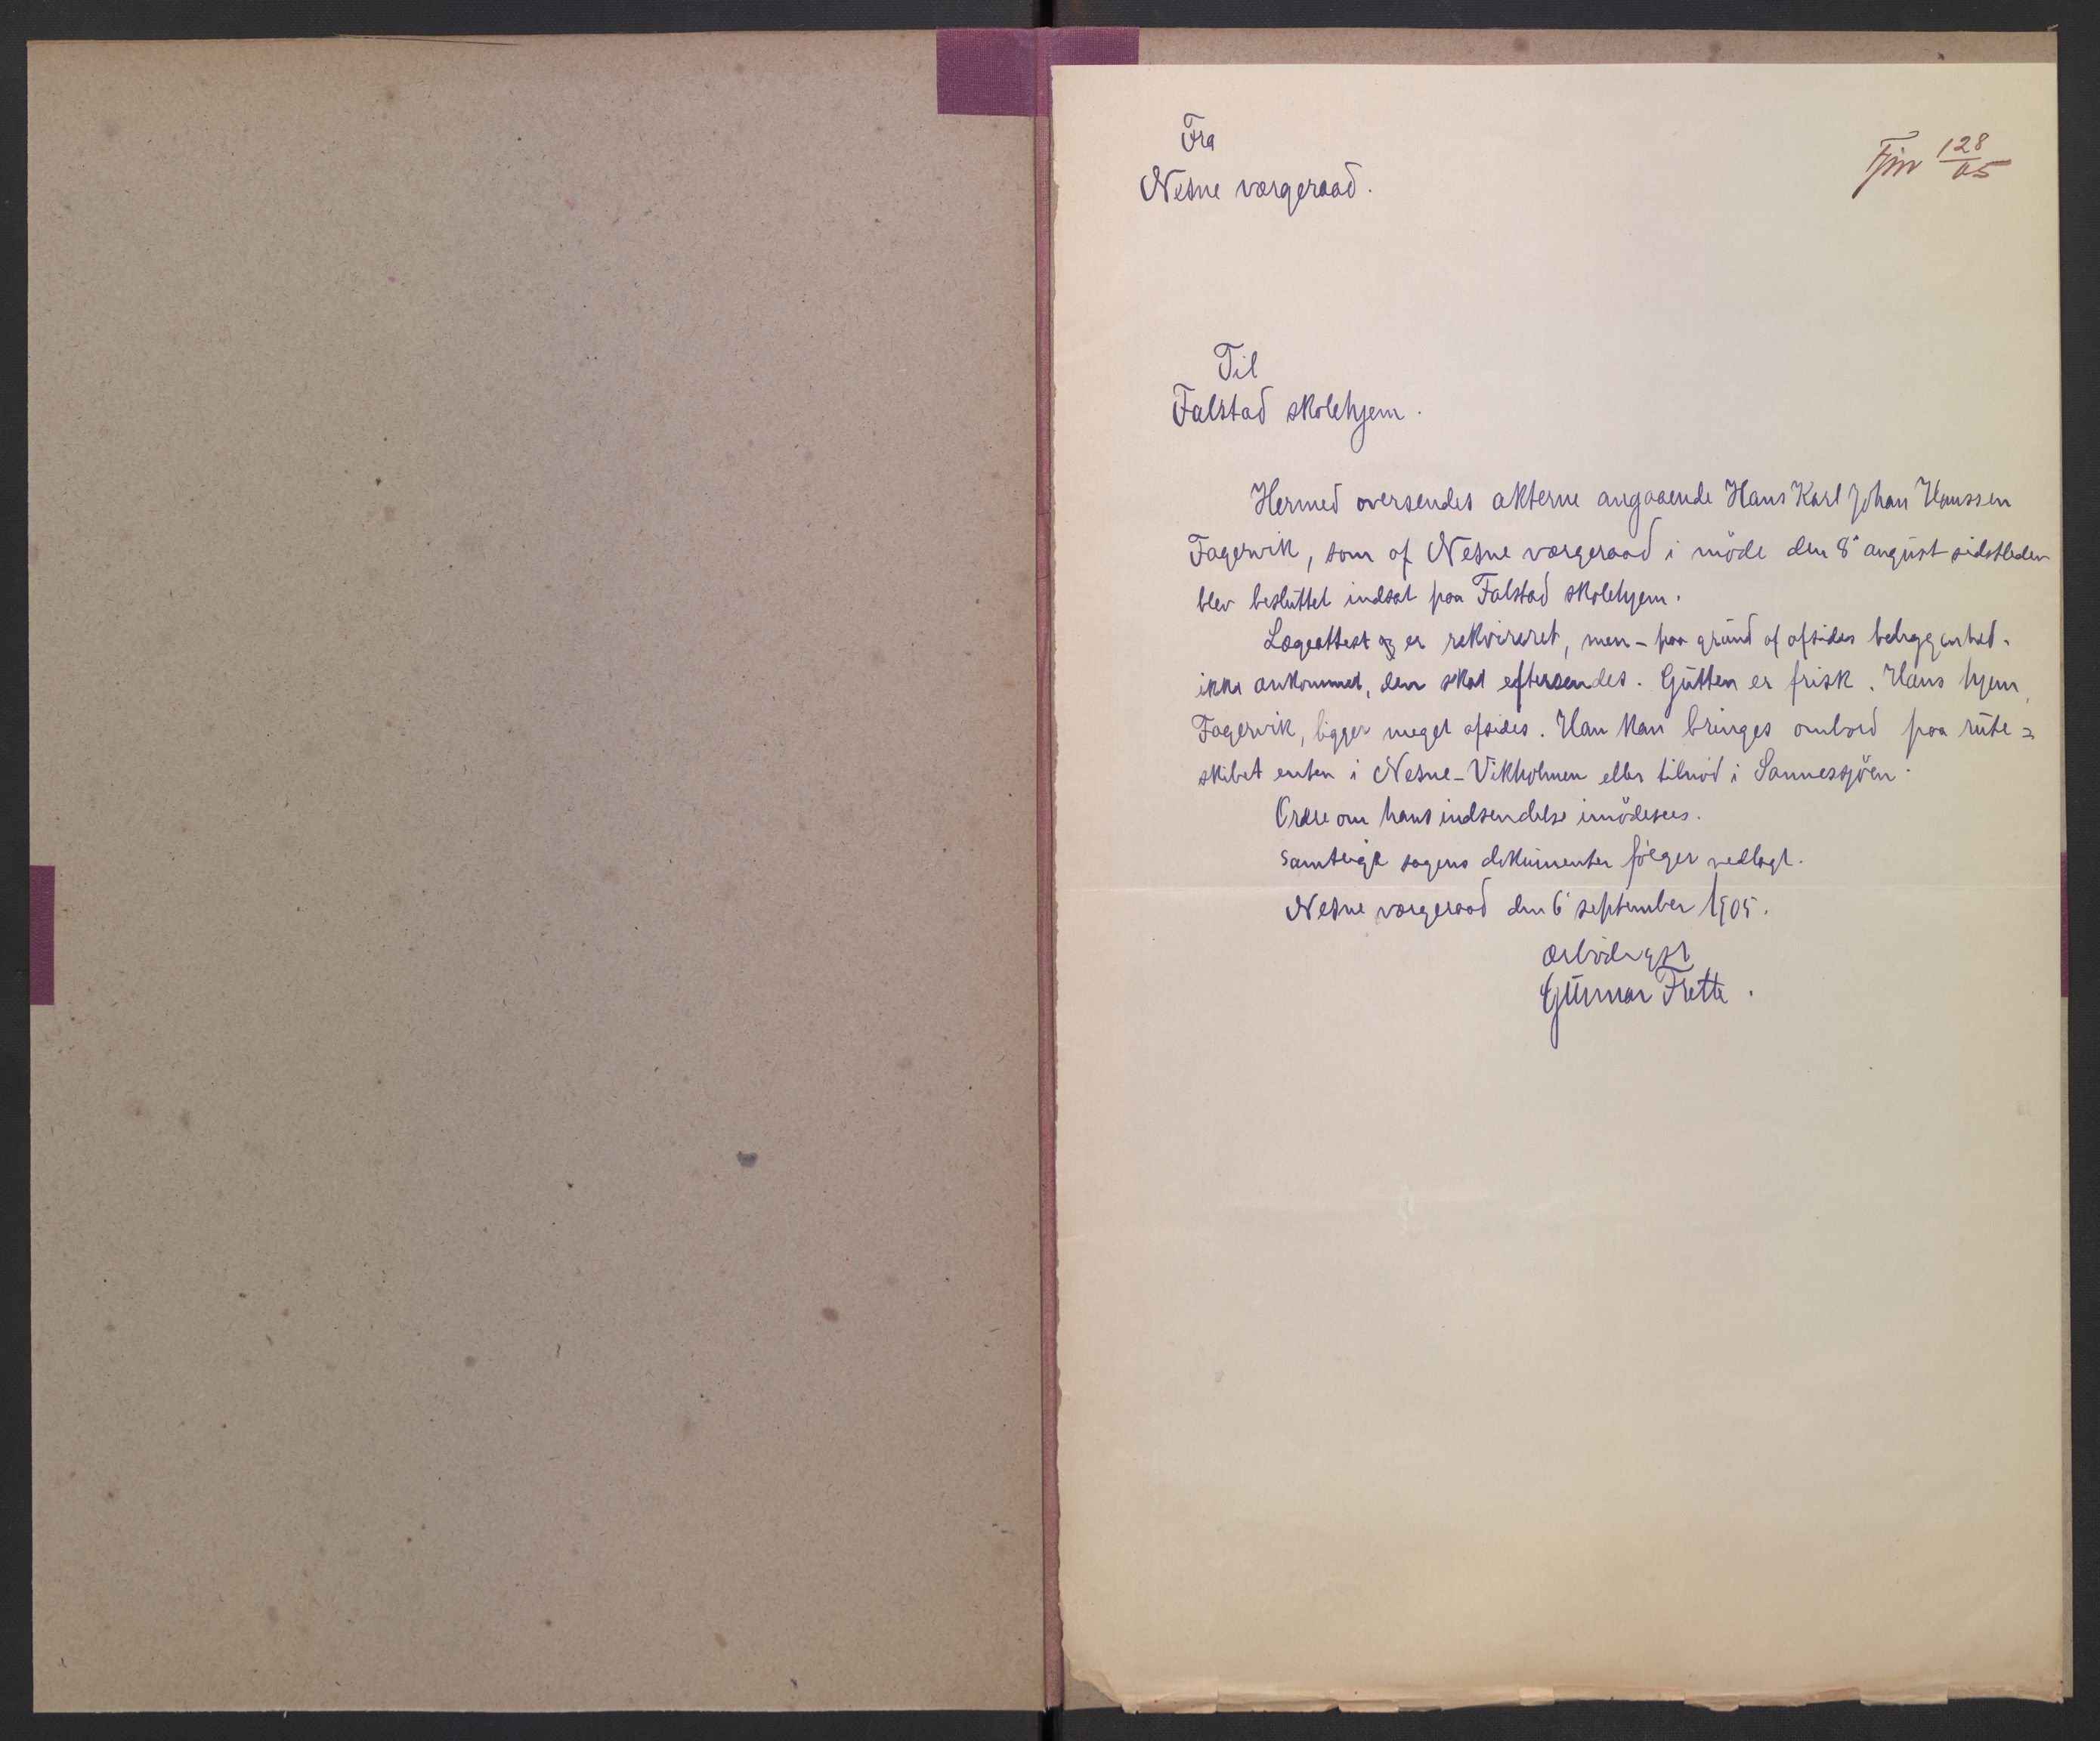 Fra
Nesne værgeraad.
Fjnr 128/05
Til
Falstad skolehjem.
Hermed oversendes akterne angaaende Hans Karl Johan Hanssen
Fagervik, som af Nesne værgeraad i møde den 8' august sidstleden
blev besluttet indsat paa Falstad skolehjem.
Lægeattest er rekvireret, men - paa grund af afsides beliggenhed -
ikke ankommet, den skal eftersendes. Gutten er frisk. Hans hjem,
Fagervik, ligger meget afsides. Han kan bringes ombord paa rute=
skibet enten i Nesne-Vikholmen eller tilnød i Sannessjøen.
Ordre om hans indsendelse imødesees.
Samtlige sagens dokumenter følger vedlagt.
Nesne værgeraad den 6' september 1905.
ærbødigst
Gunnar Frette.